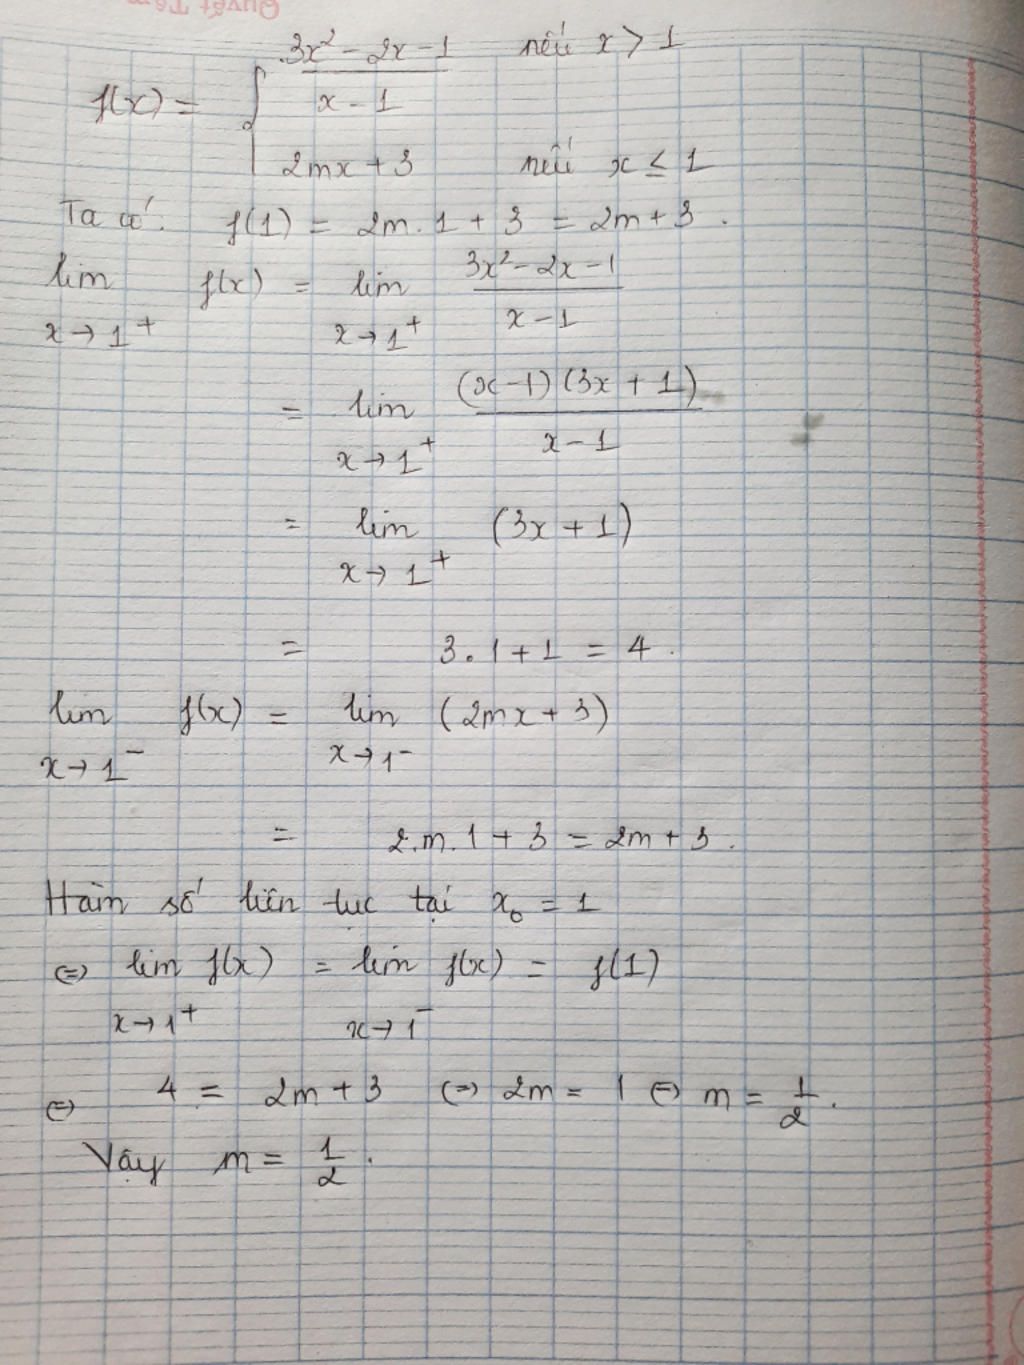 Quyết Tâm
f(x) = { (3x² - 2x - 1)/(x - 1) nếu x > 1
2mx + 3 nếu x ≤ 1
Ta có: f(1) = 2m.1 + 3 = 2m + 3.
lim x→1⁺ f(x) = lim x→1⁺ (3x² - 2x - 1)/(x - 1)
= lim x→1⁺ (x - 1)(3x + 1)/(x - 1)
= lim x→1⁺ (3x + 1)
= 3.1 + 1 = 4.
lim x→1⁻ f(x) = lim x→1⁻ (2mx + 3)
= 2.m.1 + 3 = 2m + 3.
Hàm số liên tục tại x₀ = 1
⇔ lim x→1⁺ f(x) = lim x→1⁻ f(x) = f(1)
⇔ 4 = 2m + 3 ⇔ 2m = 1 ⇔ m = 1/2.
Vậy m = 1/2.